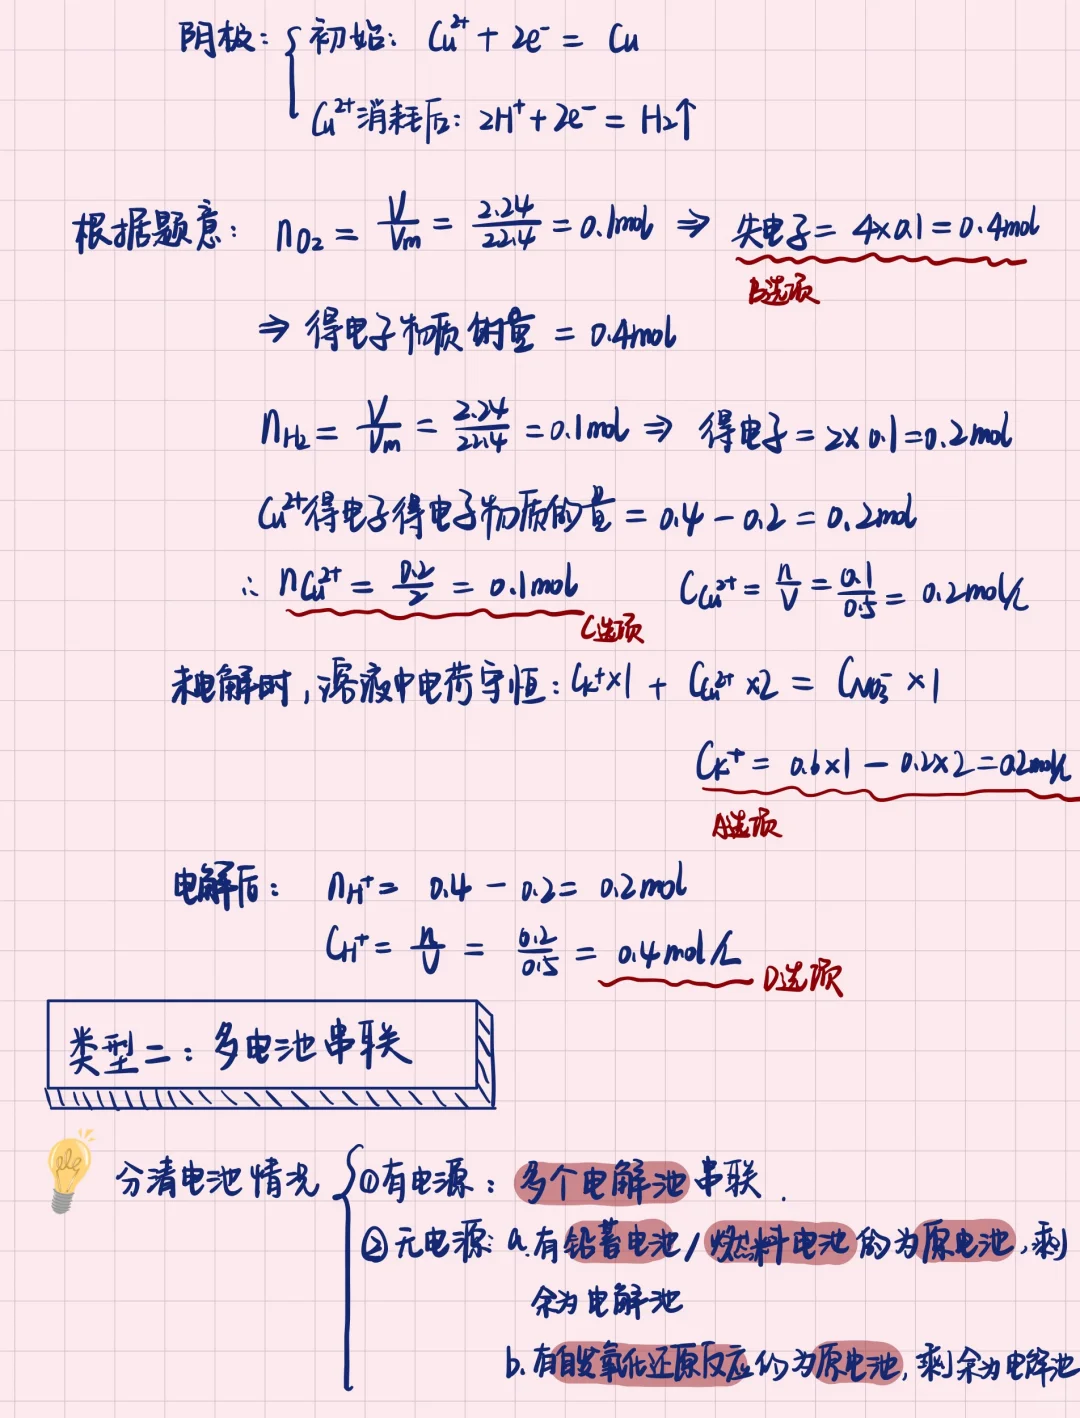 阴极：初始：Cu²⁺ + 2e⁻ = Cu
Cu²⁺消耗后：2H⁺ + 2e⁻ = H₂↑
根据题意：nO₂ = V/Vm = 2.24/22.4 = 0.1mol ⇒ 失电子 = 4×0.1 = 0.4mol
B选项
⇒ 得电子物质的量 = 0.4mol
nH₂ = V/Vm = 2.24/22.4 = 0.1mol ⇒ 得电子 = 2×0.1 = 0.2mol
Cu²⁺得电子得电子物质的量 = 0.4 − 0.2 = 0.2mol
∴ nCu²⁺ = 0.2/2 = 0.1mol CCu²⁺ = n/V = 0.1/0.5 = 0.2mol/L
C选项
未电解时，溶液中电荷守恒：CK⁺×1 + CCu²⁺×2 = CNO₃⁻×1
CK⁺ = 0.6×1 − 0.2×2 = 0.2mol/L
A选项
电解后：nH⁺ = 0.4 − 0.2 = 0.2mol
CH⁺ = n/V = 0.2/0.5 = 0.4mol/L
D选项
类型二：多电池串联
分清电池情况 ①有电源：多个电解池串联.
②无电源：a.有铅蓄电池/燃料电池的为原电池，剩
余为电解池
b.有自发氧化还原反应的为原电池，剩余为电解池